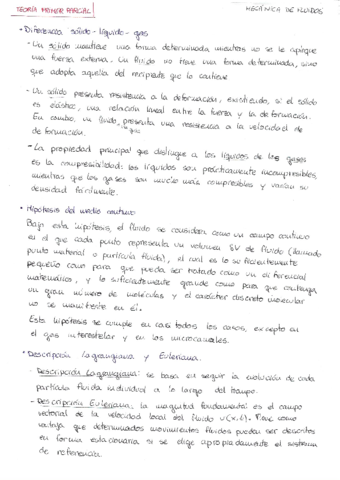 TEORÍA PRIMER PARCIAL
MECÁNICA DE FLUIDOS
• Diferencia sólido - líquido - gas
- Un sólido mantiene una forma determinada mientras no se le aplique
una fuerza externa. Un fluido no tiene una forma determinada, sino
que adopta aquella del recipiente que lo contiene
- Un sólido presenta resistencia a la deformación, existiendo, si el sólido
es elástico, una relación lineal entre la fuerza y la deformación.
En cambio, un fluido presenta una resistencia a la velocidad de
deformación.
- La propiedad principal que distingue a los líquidos de los gases
es la compresibilidad: los líquidos son prácticamente incompresibles,
mientras que los gases son mucho más compresibles y varían su
densidad fácilmente.
• Hipótesis del medio continuo
Bajo esta hipótesis, el fluido se considera como un campo continuo
en el que cada punto representa un volumen δV de fluido (llamado
punto material o partícula fluida), el cual es lo suficientemente
pequeño como para que pueda ser tratado como un diferencial
matemático, y lo suficientemente grande como para que contenga
un gran número de moléculas y el carácter discreto molecular
no se manifieste en él.
Esta hipótesis se cumple en casi todos los casos, excepto en
el gas interestelar y en los microcanales.
• Descripción Lagrangiana y Euleriana.
- Descripción Lagrangiana: se basa en seguir la evolución de cada
partícula fluida individual a lo largo del tiempo.
- Descripción Euleriana: la magnitud fundamental es el campo
vectorial de la velocidad local del fluido v(x,t). Tiene como
ventaja que determinados movimientos fluidos pueden ser descritos
en forma estacionaria si se elige apropiadamente el sistema
de referencia.